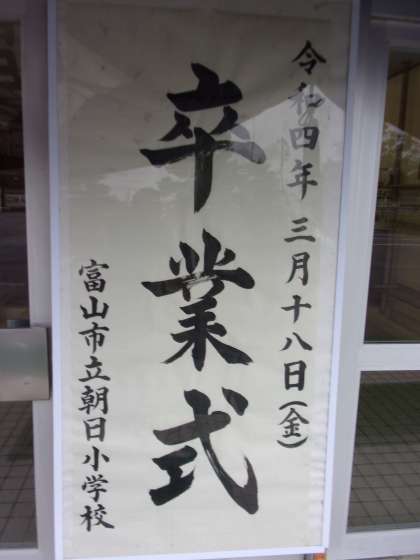 令和四年三月十八日(金)
卒業式
富山市立朝日小学校